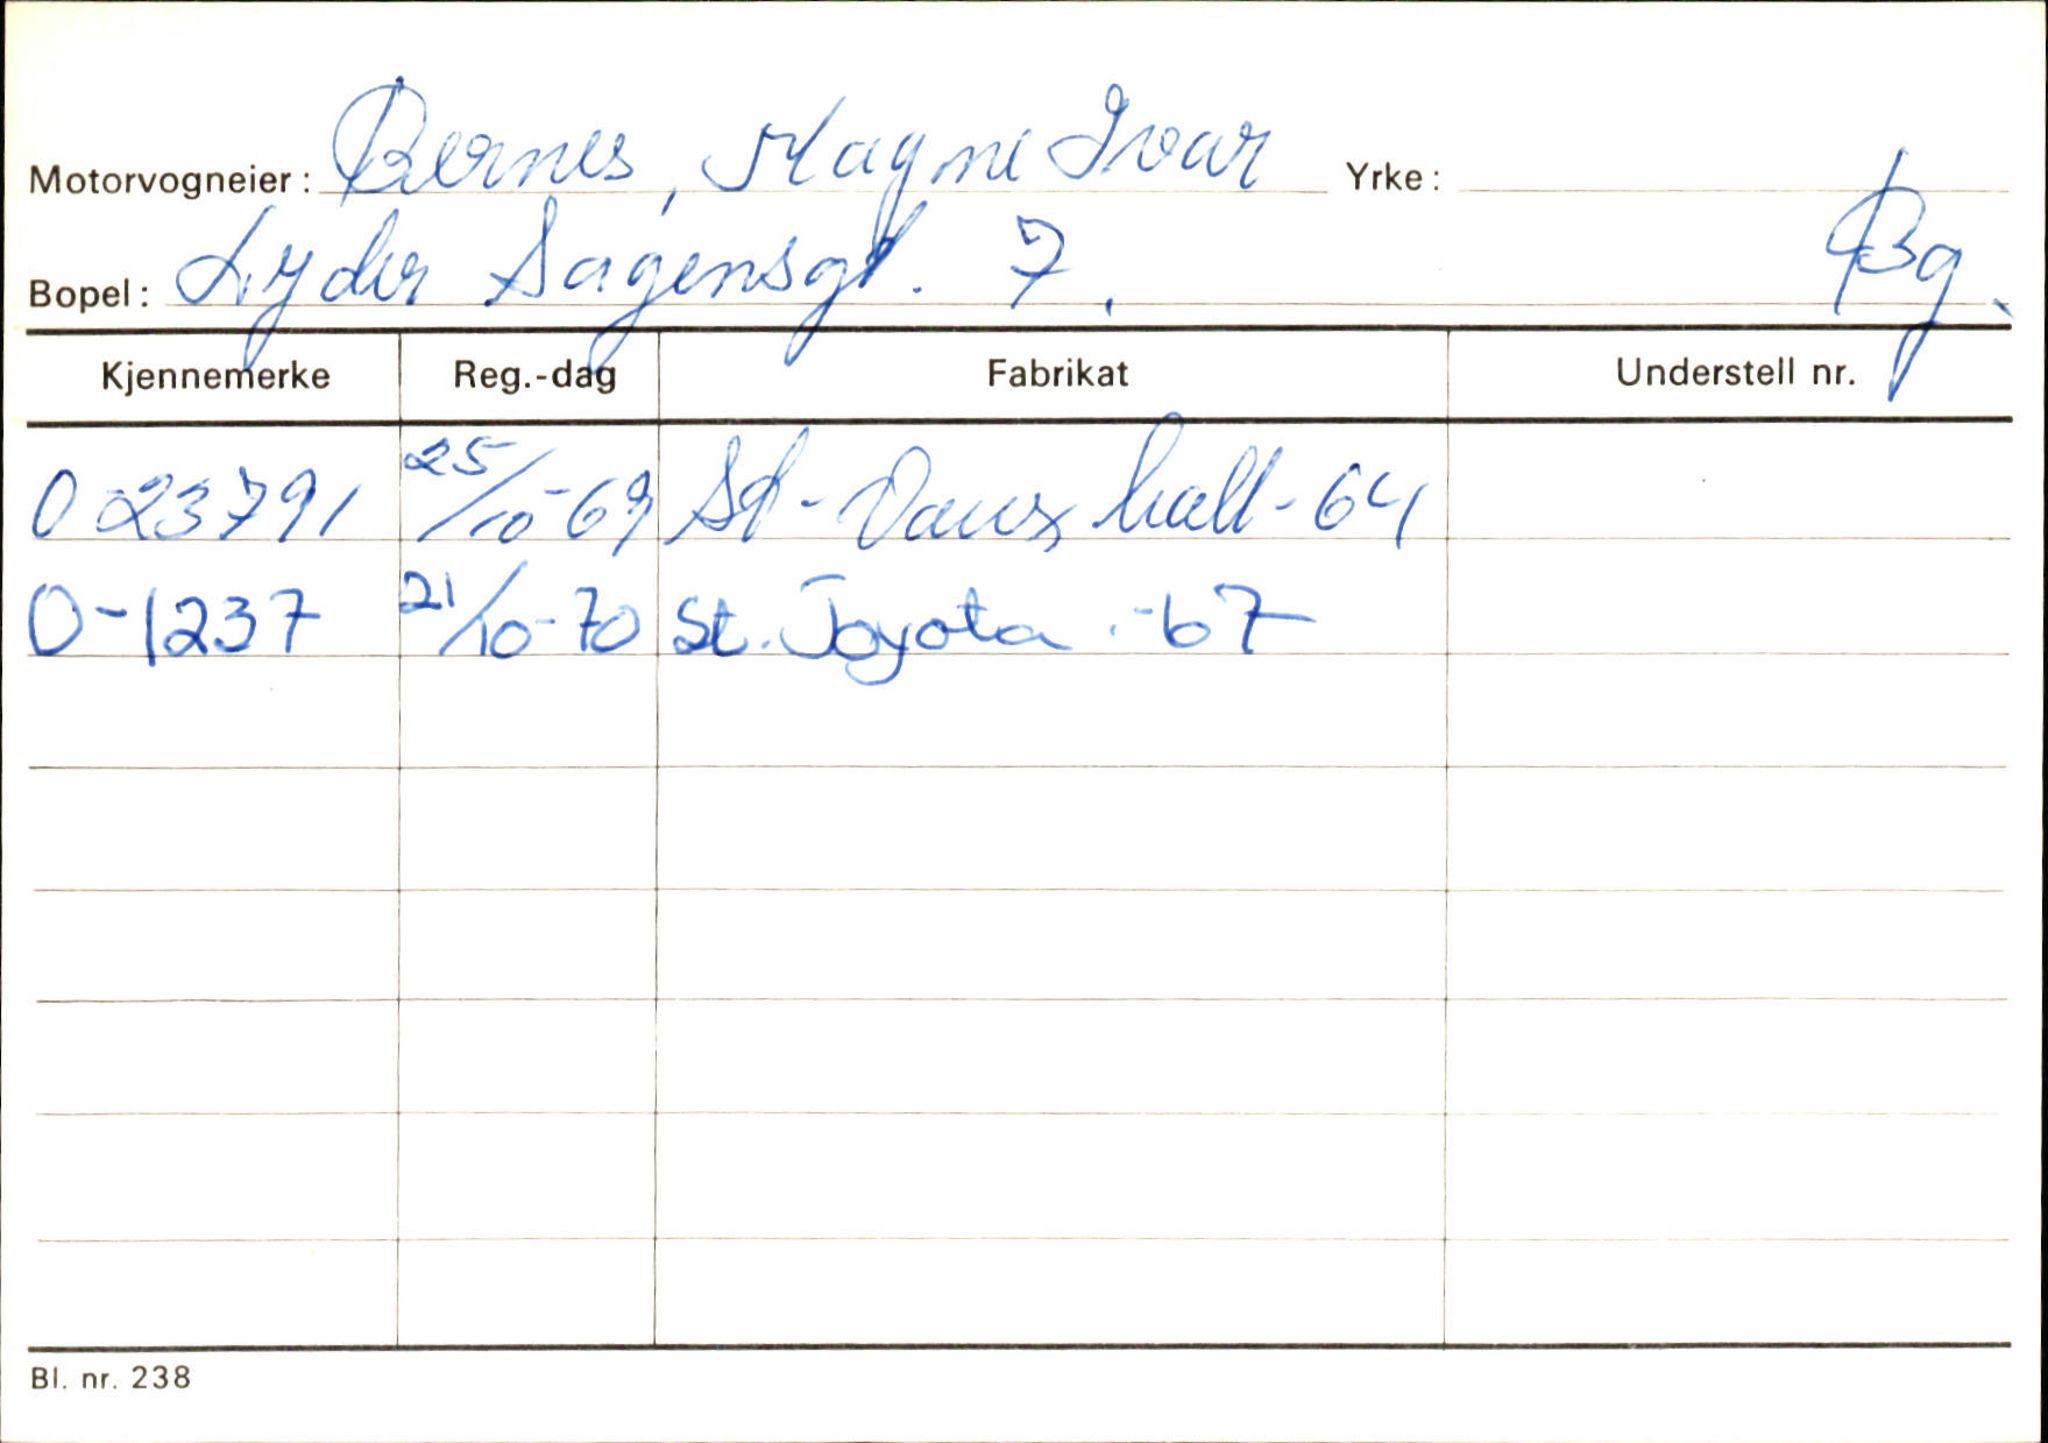 Motorvogneier: Bernes, Magne Ivar Yrke:
Bopel: Lyder Sagensgt. 7. Bg.
Kjennemerke Reg.-dag Fabrikat Understell nr.
O 23791 25/10-69 St-Vauxhall-64
O-1237 21/10-70 St. Toyota -67
Bl. nr. 238